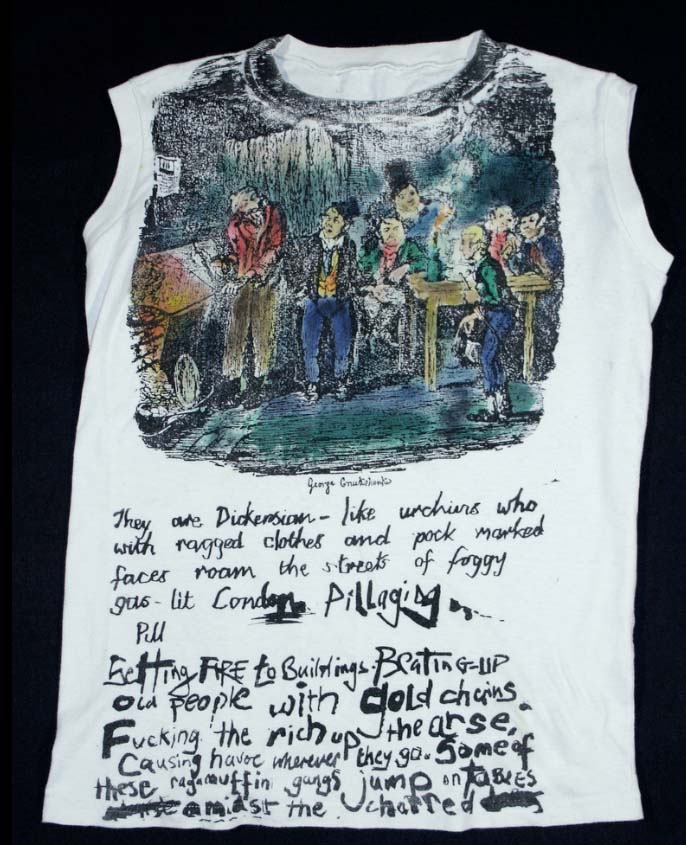 George Cruikshank
They are Dickensian - like urchins who
with ragged clothes and pock marked
faces roam the streets of foggy
gas-lit London Pillaging
Pill
Setting FIRE to Buildings. BEATING-UP
old people with gold chains.
Fucking the rich up the arse.
Causing havoc wherever they go. Some of
these ragamuffin gangs jump on tables
amidst the charred